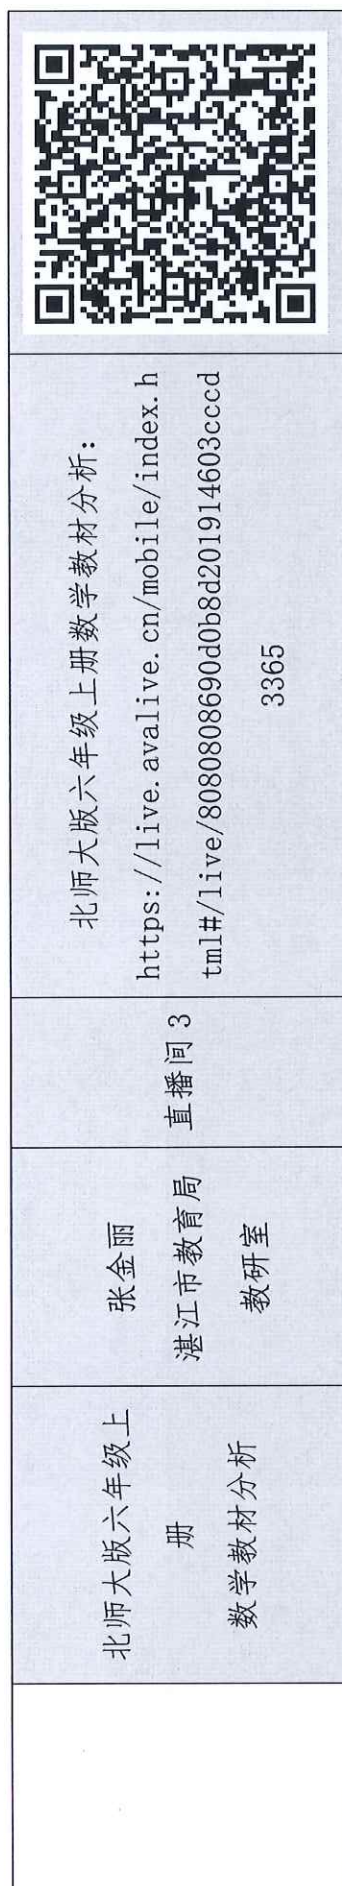 北师大版六年级上
册
数学教材分析
张金丽
湛江市教育局
教研室
直播间 3
北师大版六年级上册数学教材分析:
https://live.avalive.cn/mobile/index.h
tml#/live/8080808690d0b8d201914603cccd
3365